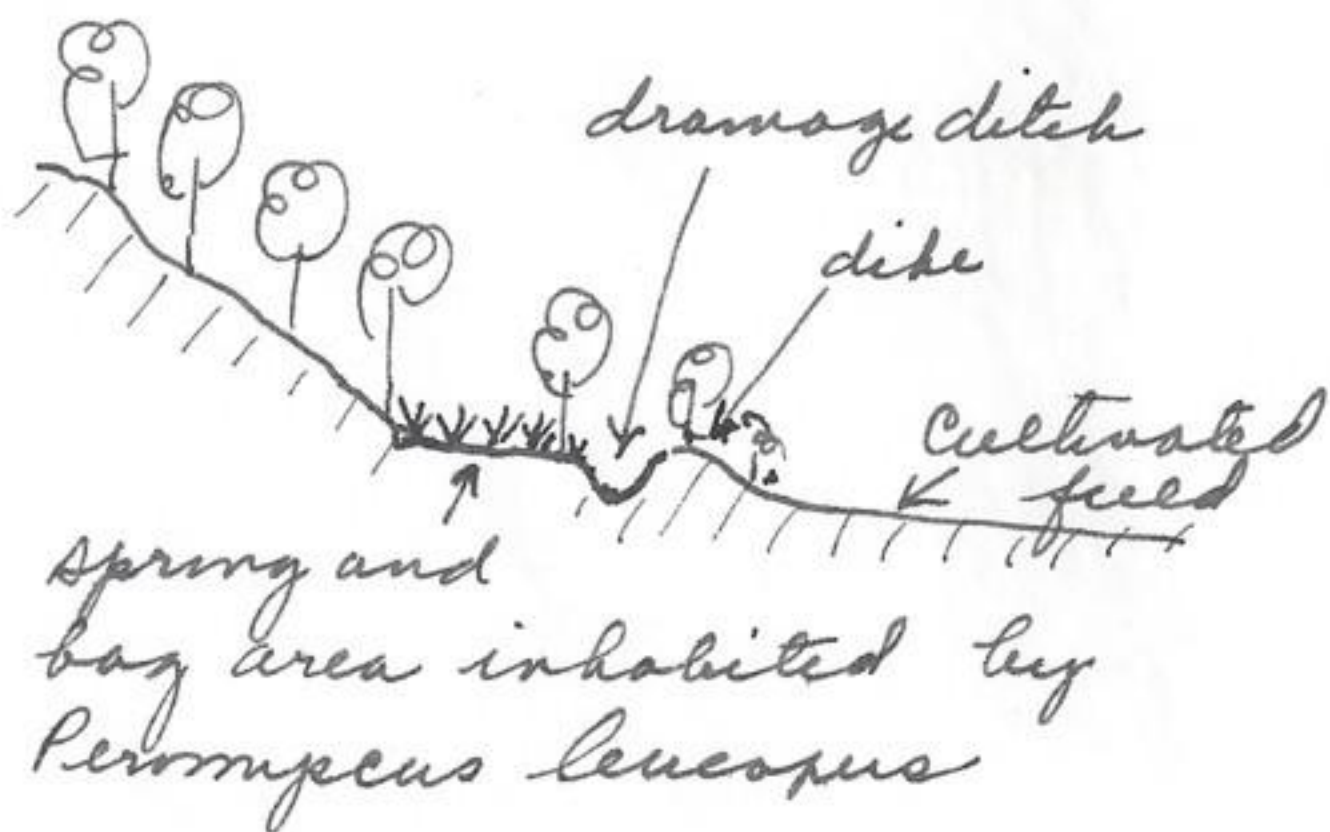 drainage ditch
dike
Cultivated
field
spring and
bog area inhabited by
Peromyscus leucopus